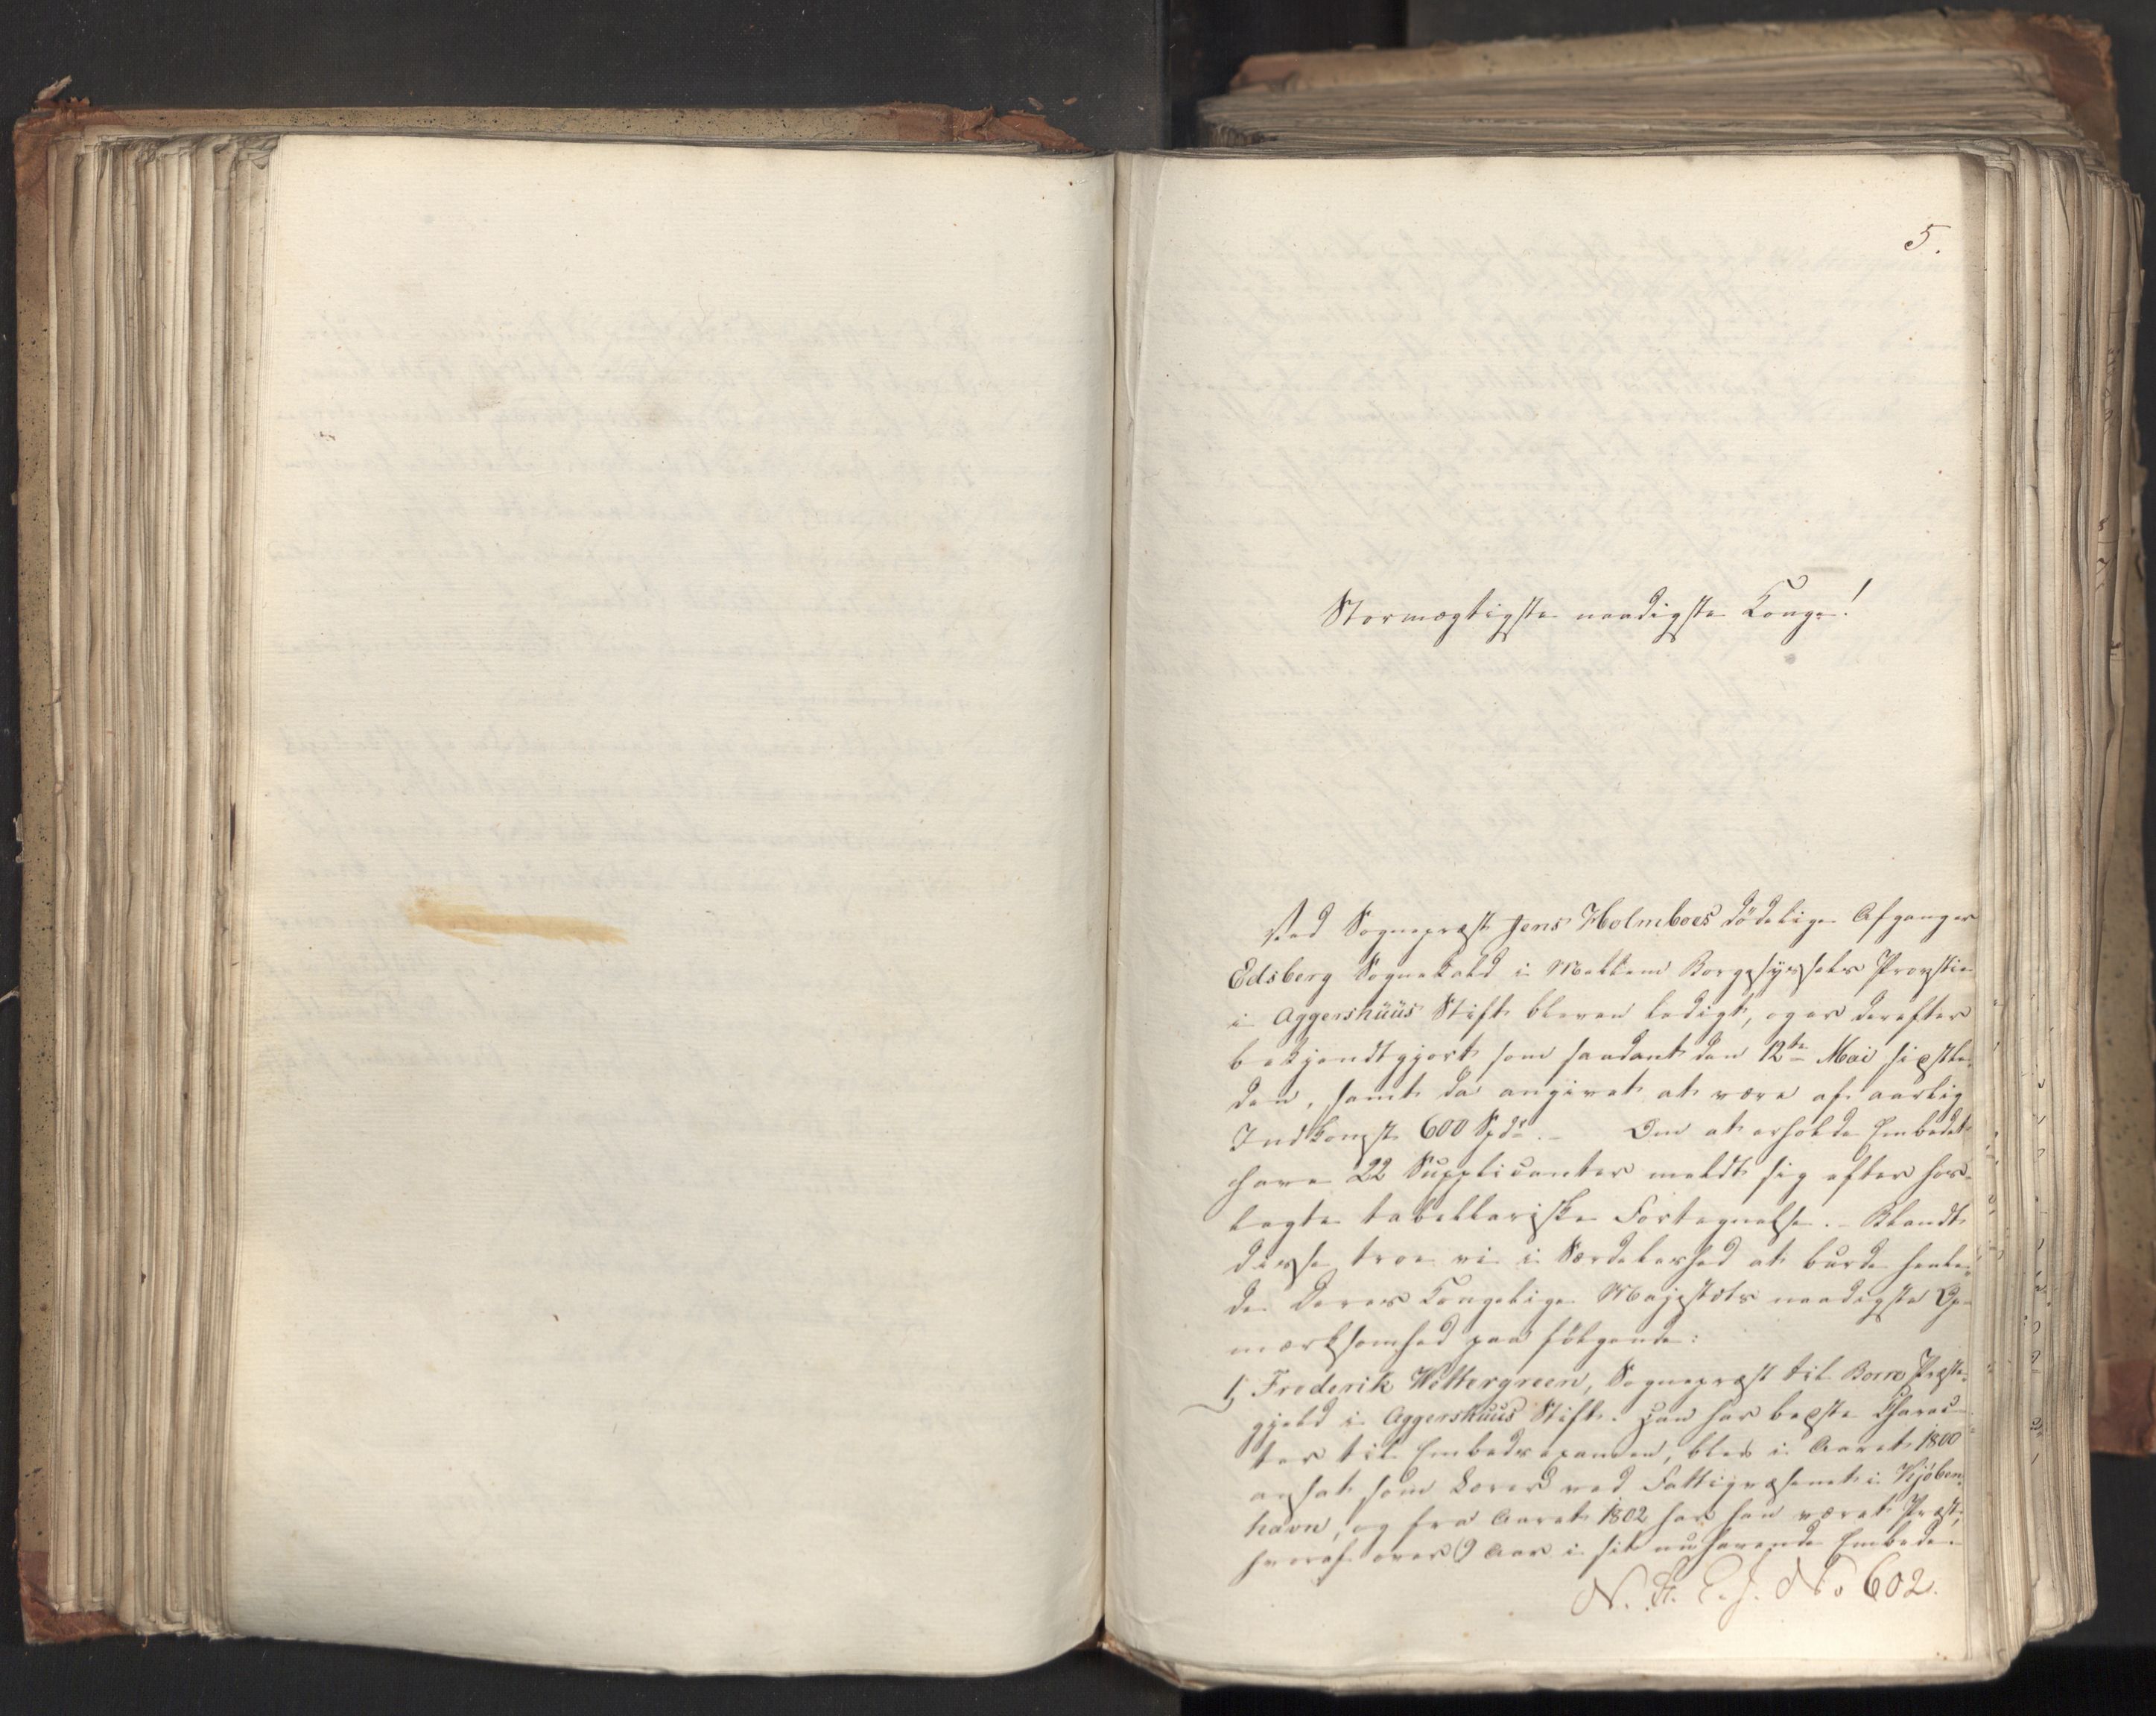 5.
Stormægtigste naadigste Konge!
Ved Sognepræst Jens Holmboes dödelige Afgang er
Edsberg Sognekald i Mellem Borgesyssels Provstie
i Aggershuus Stift bleven ledigt, og er derefter
bekjendtgjort som saadant den 12te Mai sidstle-
den, samt da angivet at være af aarlig
Indkomst 600 Spdr. – Om at erholde Embedet
have 22 Supplicanter meldt sig efter hos-
lagte tabellariske Fortegnelse. – Blandt
disse troe vi i Særdeleshed at burde henle-
de Deres Kongelige Majestæts naadigste Op-
mærksomhed paa fölgende:
1, Frederik Wettergreen, Sognepræst til Borre Præste-
gjeld i Aggershuus Stift. Han har bedste Charac-
ter til Embedsexamen, blev i Aaret 1800
ansat som Lærer ved Fattigvæsenet i Kjöben-
havn, og fra Aaret 1802 har han været Præst,
hvoraf over 9 Aar i sit nuhavende Embede.
No 602.